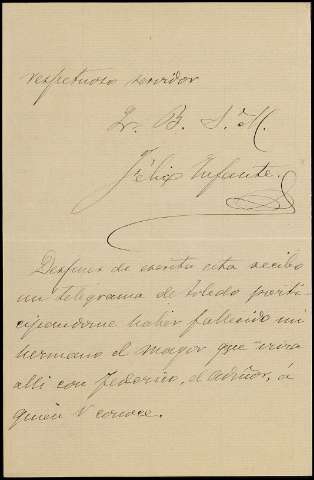 respetuoso servidor
Q. B. S. M.
Félix Infante.
Despues de escrita esta recibo
un telegrama de Toledo parti-
cipandome haber fallecido mi
hermano el mayor que vivia
alli con Federico, el admor, á
quien V conoce.